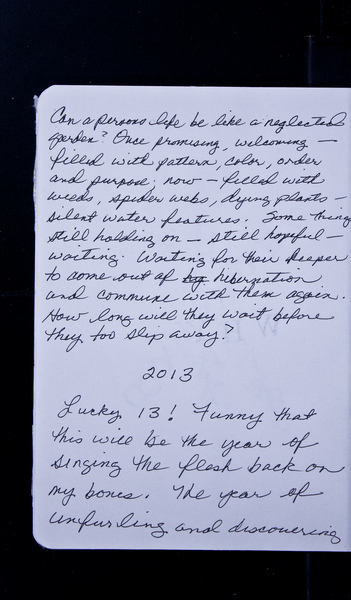 Can a persons life be like a neglected
garden? Once promising, welcoming —
filled with pattern, color, order
and purpose, now — filled with
weeds, spider webs, dying plants —
silent water features. Some things
still holding on — still hopeful —
waiting. Waiting for their keeper
to come out of hibernation
and commune with them again.
How long will they wait before
they too slip away?
2013
Lucky 13! Funny that
this will be the year of
singing the flesh back on
my bones. The year of
unfurling and discovering